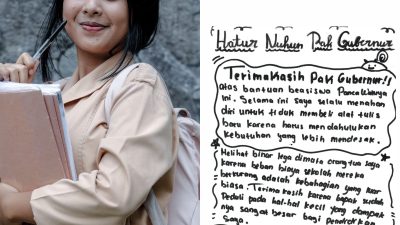 Hatur Nuhun Pak Gubernur
Terimakasih Pak Gubernur!!
atas bantuan beasiswa Panca Waluya
ini. Selama ini saya selalu menahan
diri untuk tidak membeli alat tulis
baru karena harus mendahulukan
kebutuhan yang lebih mendesak.
Melihat binar lega dimata orang tua saya
karena beban biaya sekolah mereka
berkurang adalah kebahagian yang luar
biasa. Terima kasih karena bapak sudah
Peduli pada hal-hal kecil yang dampak
nya sangat besar bagi pendidikan
saya.